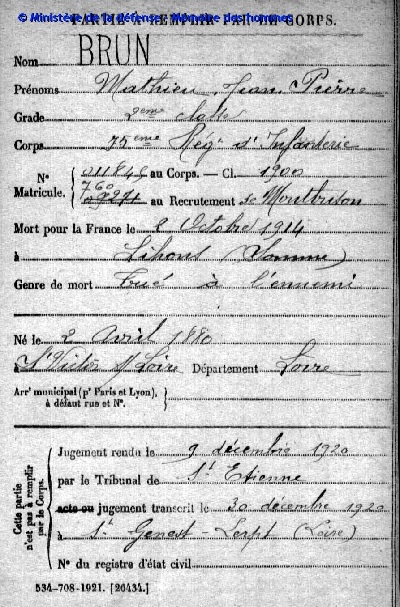 © Ministère de la défense - Mémoire des hommes
PARTIE À REMPLIR PAR LE CORPS.
Nom BRUN
Prénoms Mathieu Jean Pierre
Grade 2eme classe
Corps 75eme Rég. d'Infanterie
N° Matricule. { 011845 au Corps. — Cl. 1900
760
au Recrutement de Montbrison
Mort pour la France le 2 Octobre 1914
à Lihons (Somme)
Genre de mort Tué à l'ennemi
Né le 2 avril 1880
à St Victor s/ Loire Département Loire
Arrt municipal (pr Paris et Lyon), à défaut rue et N°. }
Cette partie n'est pas à remplir par le Corps.
Jugement rendu le 9 décembre 1920
par le Tribunal de St Etienne
acte ou jugement transcrit le 30 décembre 1920
à St Genest-Lerpt (Loire)
N° du registre d'état civil
534-708-1921. [26434.]